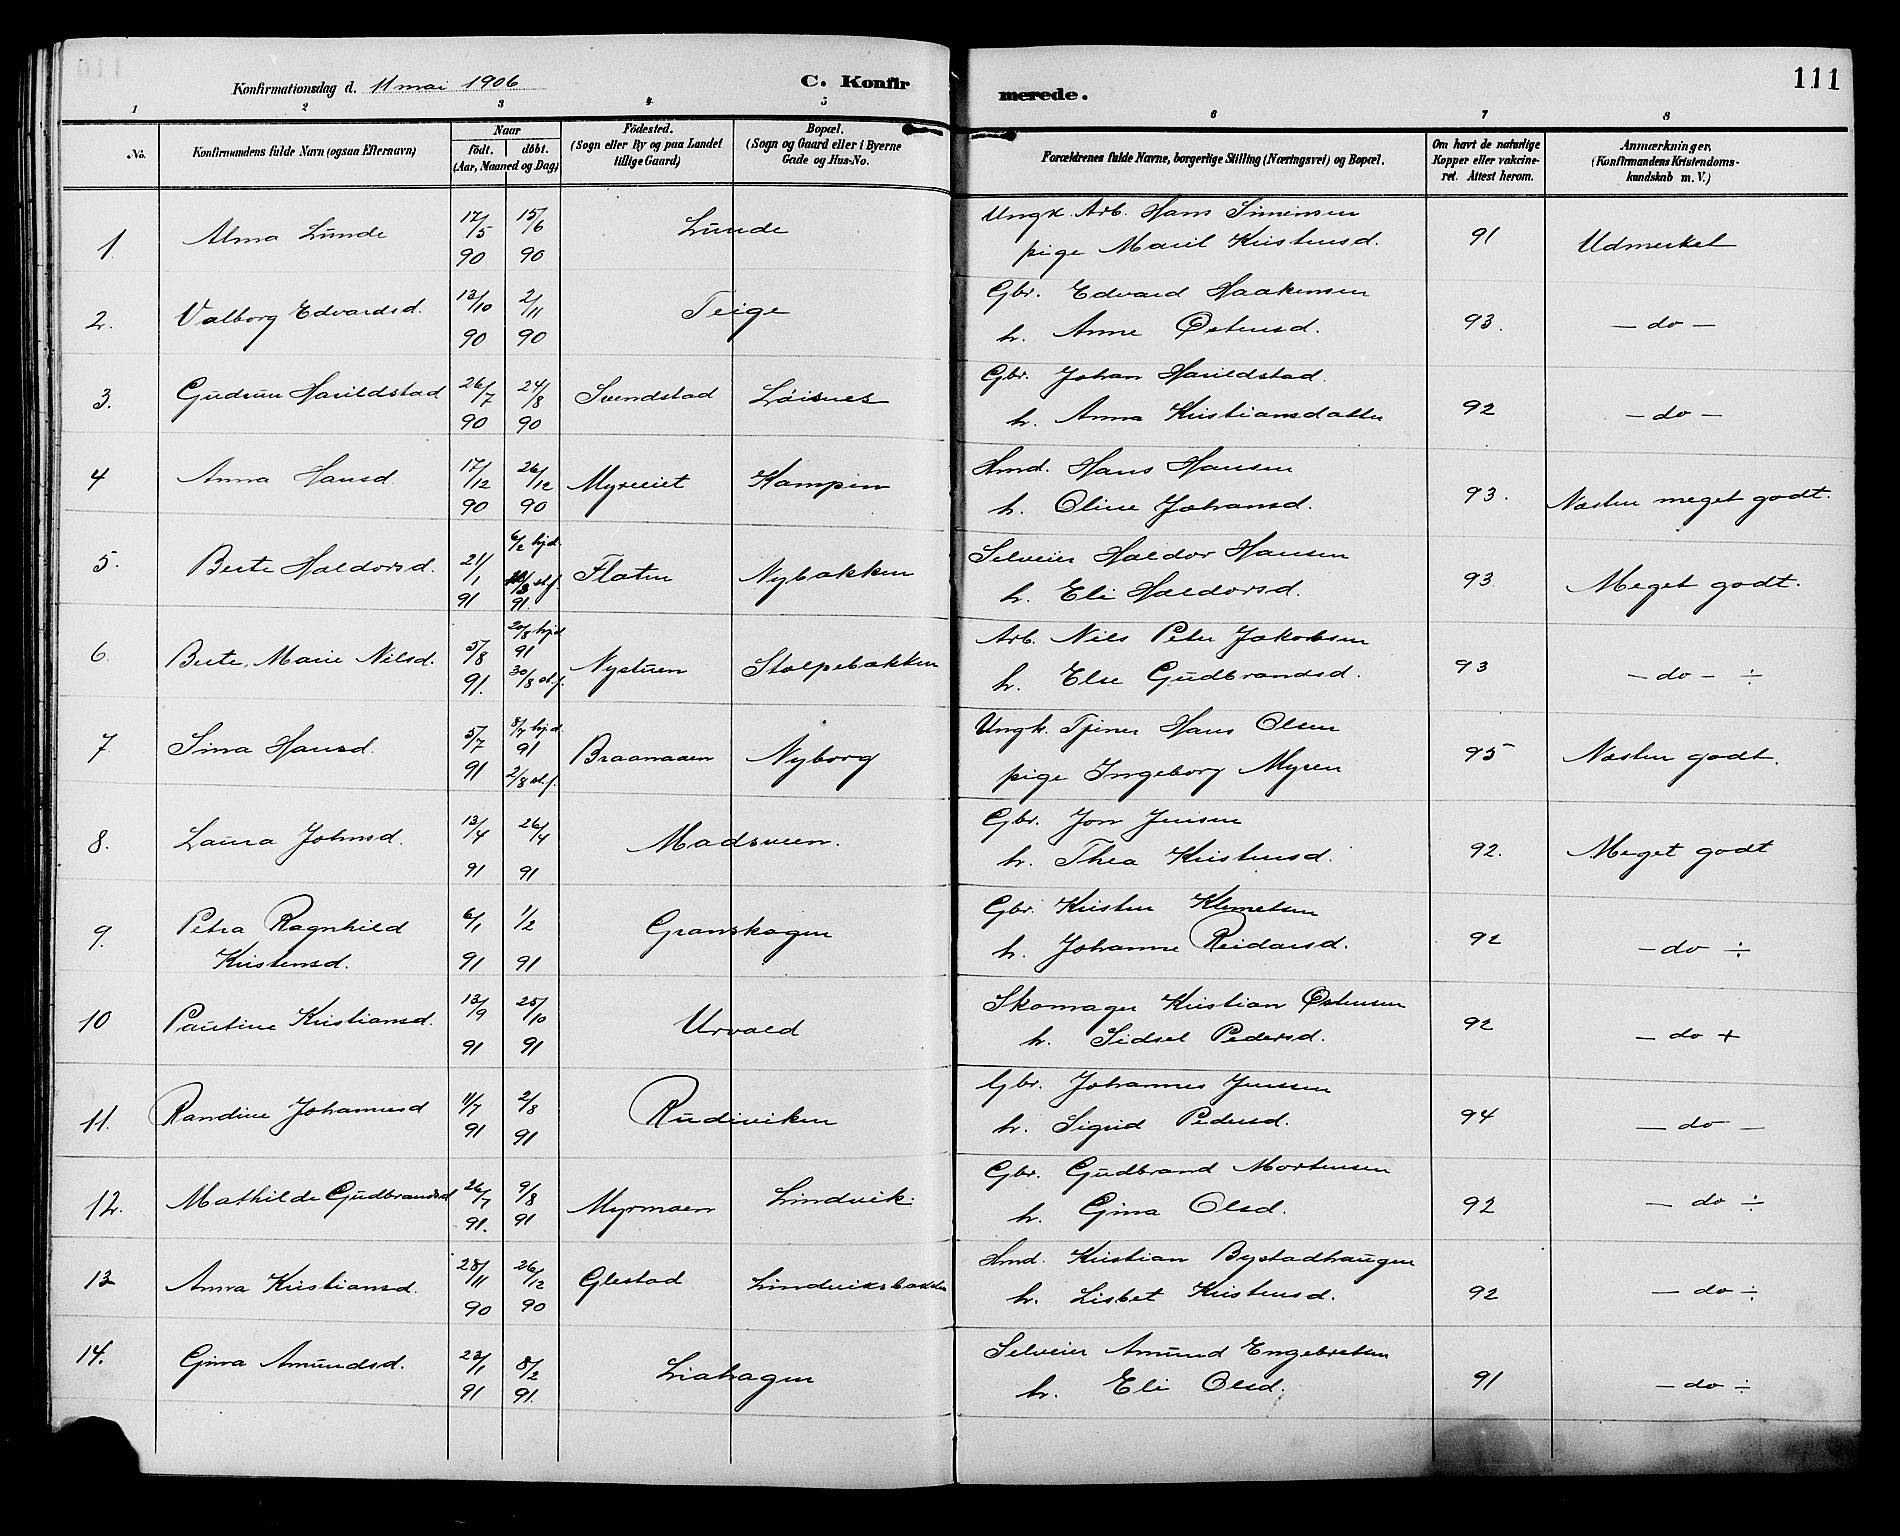 111
Konfirmationsdag d. 11 mai 1906
C. Konfirmerede.
1 2 3 4 5 6 7 8
No.
Konfirmandens fulde Navn (ogsaa Efternavn)
Naar
födt. döbt.
(Aar, Maaned og Dag)
Födested.
(Sogn eller By og paa Landet
tillige Gaard)
Bopæl.
(Sogn og Gaard eller i Byerne
Gade og Hus-No.
Forældrenes fulde Navne, borgerlige Stilling (Næringsvei) og Bopæl.
Om havt de naturlige
Kopper eller vakcine-
ret. Attest herom.
Anmærkninger.
(Konfirmandens Kristendoms-
kundskab m. V.)
1 Alma Lunde 17/5 90 15/6 90 Lunde Ungk. Arb. Hans Simensen
pige Marit Kristensd. 91 Udmerket
2. Valborg Edvardsd. 13/10 90 2/11 90 Teige Gbr. Edvard Haakensen
h. Anne Østensd. 93. - do -
3. Gudrun Harildstad 26/7 90 24/8 90 Svendstad Løisnes Gbr. Johan Harildstad.
h. Anna Kristiansdatter 92 - do -
4 Anna Hansd. 17/12 90 26/12 90 Myreeiet Kampen Hmd. Hans Hansen
h. Oline Johansd. 93. Næsten meget godt.
5. Berte Haldorsd. 21/1 91 6/2 hjd. st.f. 91. Flaten Nybakken Selveier Haldor Hansen
h. Eli Haldorsd. 93 Meget godt.
6. Berte Marie Nilsd. 5/8 91. 20/8 hjd 91 30/8 st.f. Nystuen Stolpebakken Arb. Nils Peter Jakobsen
h. Else Gudbrandsd. 93 - do - ÷
7 Sina Hansd. 5/7 91 8/7 hjd. 91 2/8 st.f. Braanaaen Nyborg Ungk. Tjener Hans Olsen
pige Ingeborg Myren 95 Næsten godt.
8. Laura Johnsd. 13/4 91 26/4 91 Madsveen. Gbr. Jon Jensen
h. Thea Kristensd. 92. Meget godt
9. Petra Ragnhild
Kristensd. 6/1 91 1/2 91 Granskogen Gbr. Kristen Klemetsen
h. Johanne Reidarsd. 92 - do ÷
10 Pauline Kristiansd. 13/9 91 25/10 91 Urvold Skomager Kristian Østensen
h. Sidsel Pedersd. 92 - do +
11. Randine Johannesd 11/7 91 2/8 91 Rudiviken Gbr. Johannes Jenssen
h. Sigrid Pedersd. 94 - do -
12. Mathilde Gudbrandsd 26/7 91. 9/8 91 Myrmoen Lindvik. Gbr. Gudbrand Mortensen
h. Gina Olsd. 92 - do ÷
13 Anna Kristiansd. 28/11 90 26/12 90 Glestad Lindviksbakken Hmd. Kristian Bystadhaugen
h. Lisbet Kristensd. 92 - do ÷
14. Gina Amundsd. 23/1 91 8/2 91. Liahagen Selveier Amund Engebretsen
h. Eli Olsd. 91 - do ÷